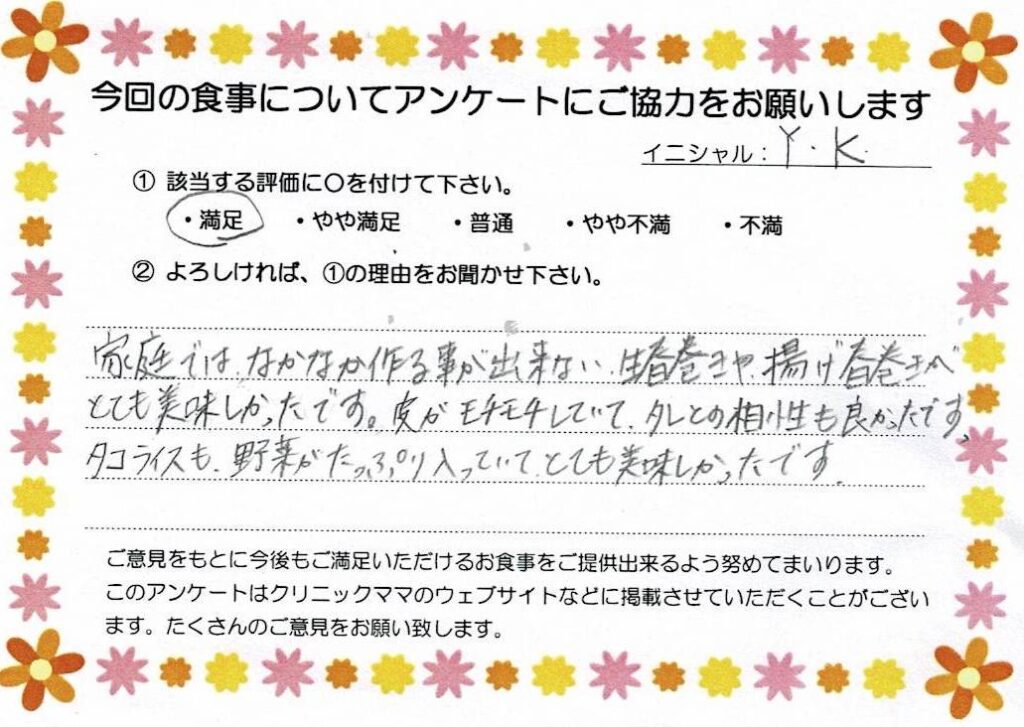 今回の食事についてアンケートにご協力をお願いします
イニシャル：Y.K.
① 該当する評価に〇を付けて下さい。
・満足 ・やや満足 ・普通 ・やや不満 ・不満
② よろしければ、①の理由をお聞かせ下さい。
家庭では、なかなか作る事が出来ない、生春巻きや、揚げ春巻きが
とても美味しかったです。皮がモチモチしていて、タレとの相性も良かったです。
タコライスも、野菜がたっぷり入っていて、とても美味しかったです。
ご意見をもとに今後もご満足いただけるお食事をご提供出来るよう努めてまいります。
このアンケートはクリニックママのウェブサイトなどに掲載させていただくことがござい
ます。たくさんのご意見をお願い致します。